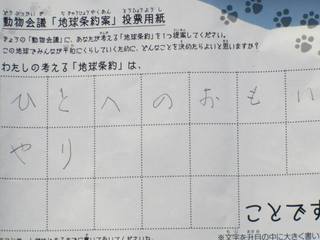 動物会議「地球条約案」投票用紙
きょうの「動物会議」に、あなたが考える「地球条約」を1つ提案してください。
この地球でみんなが平和にくらしていくために、どんなことを決めたらよいと思いますか?
わたしの考える「地球条約」は、
ひとへのおもい
やり
すでとこ
※文字を升目の中に大きく書い